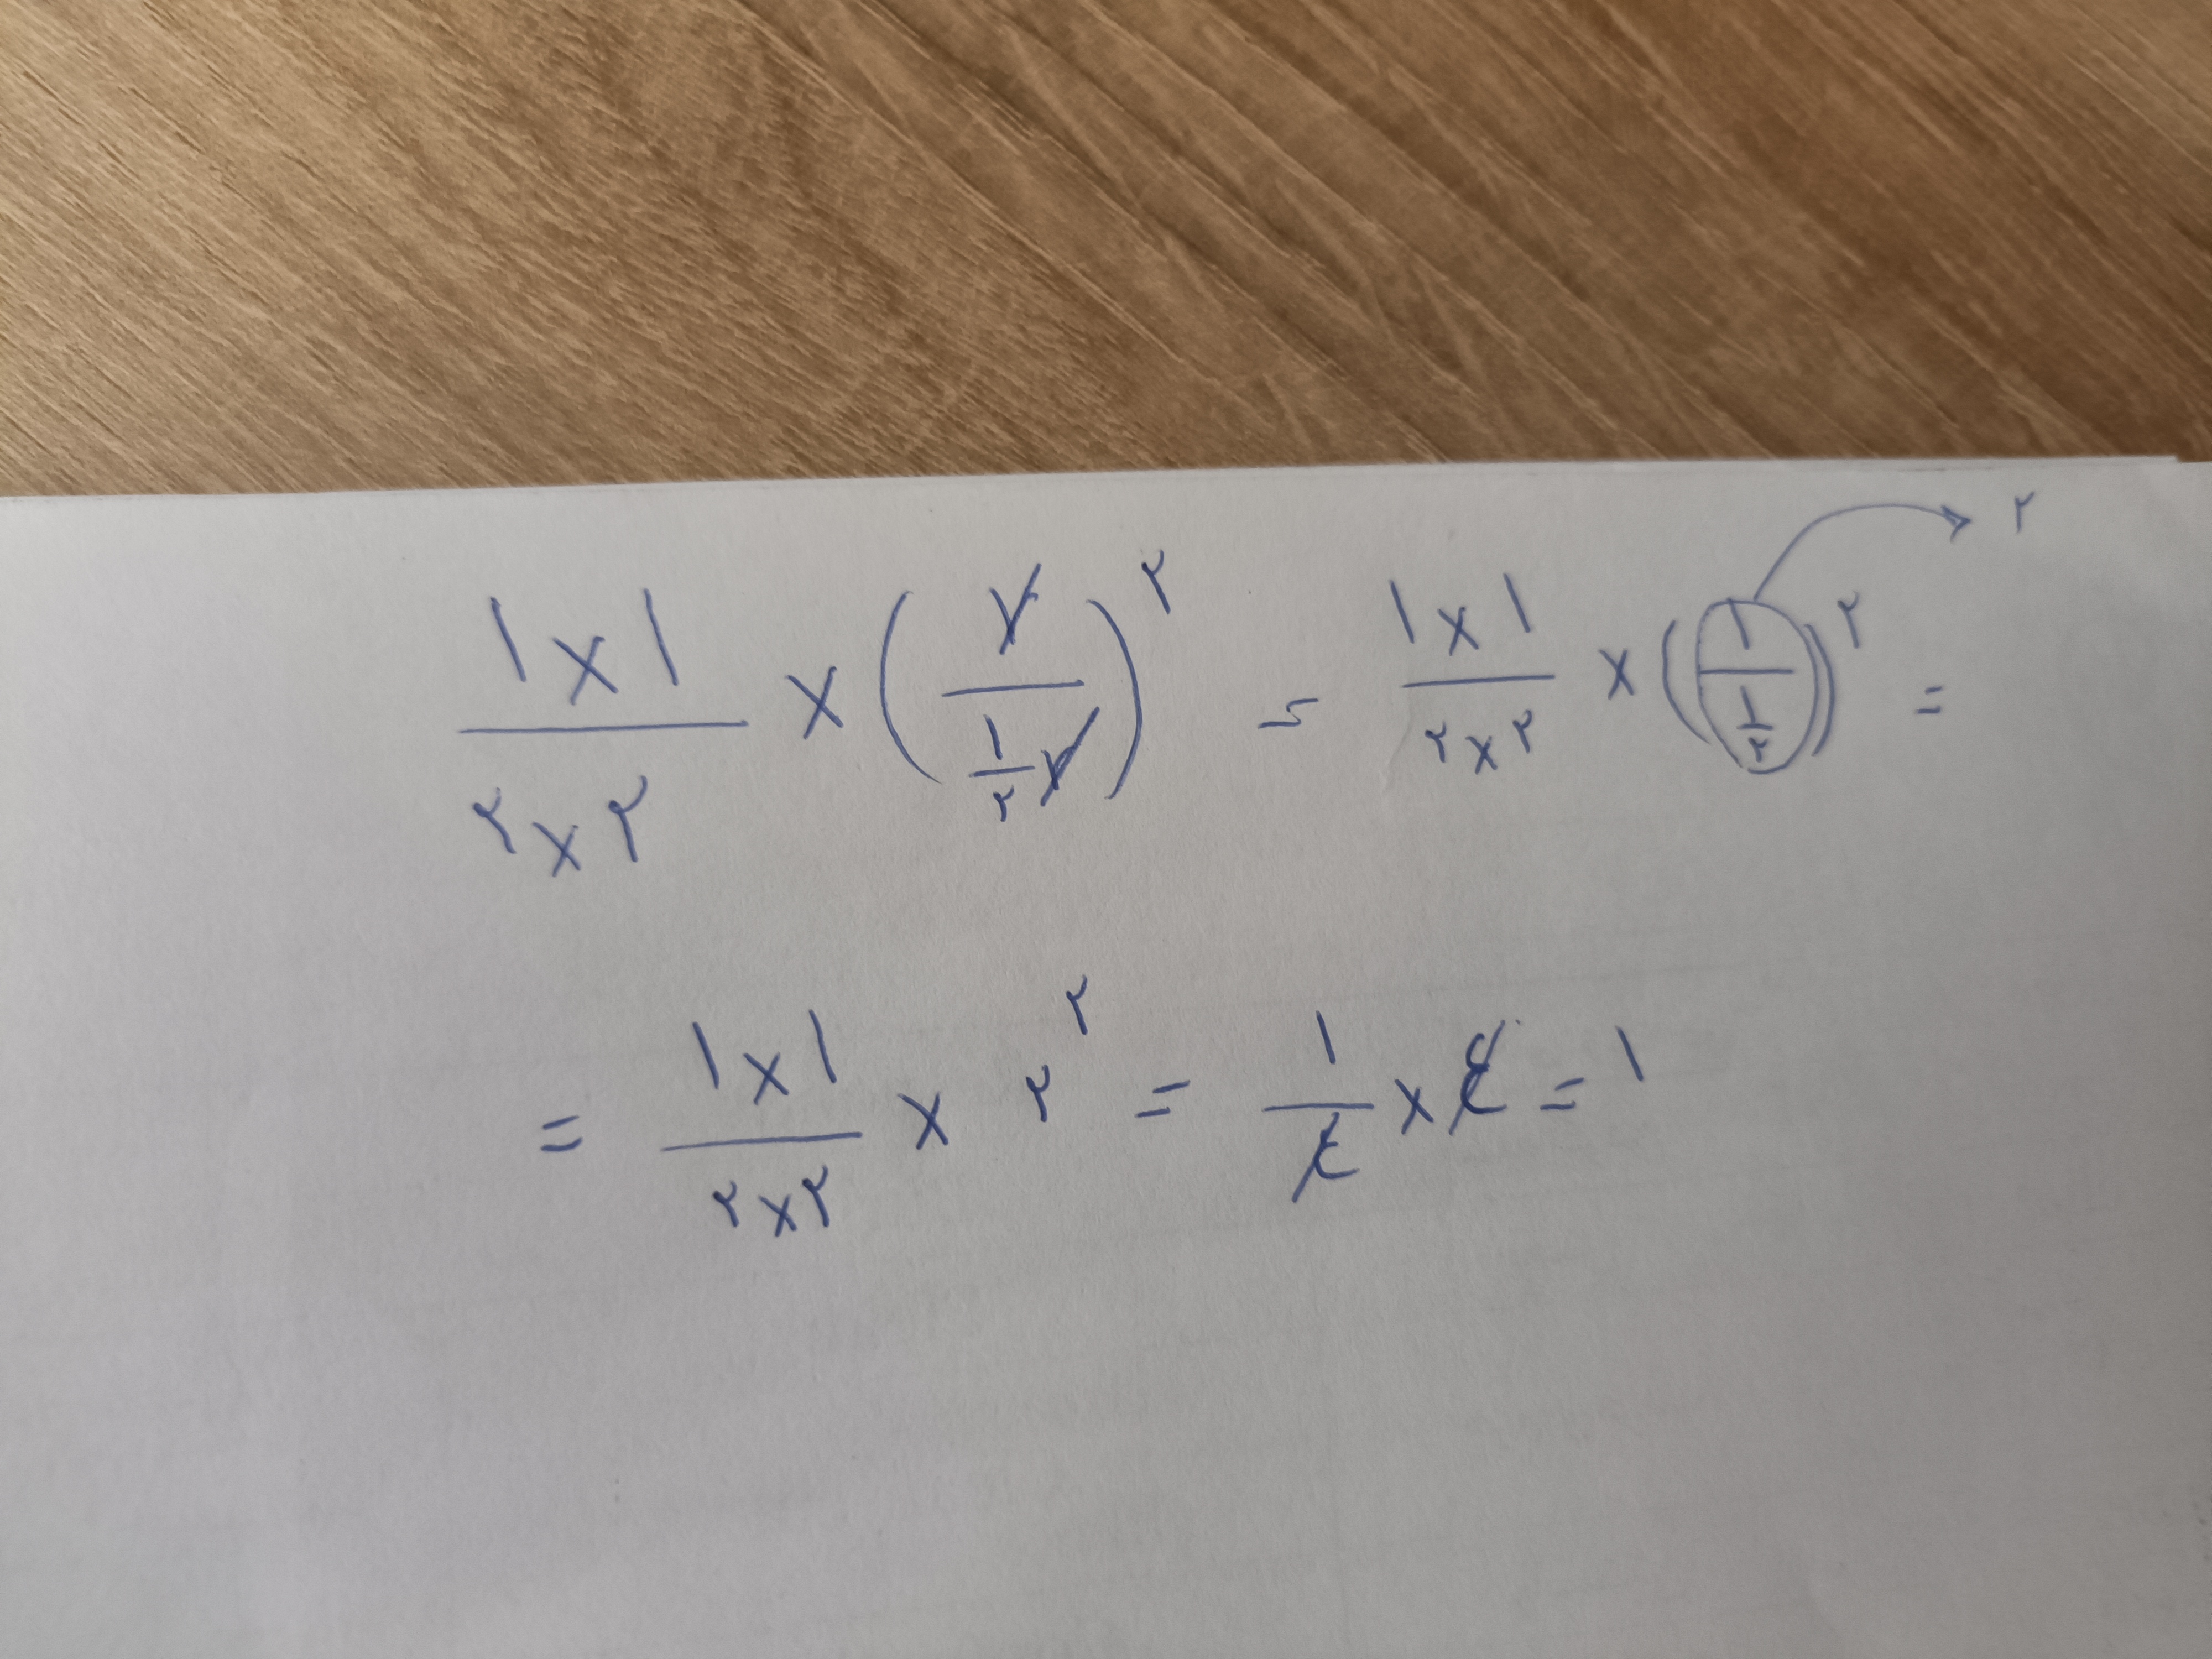 (۱×۱)/(۲×۲) × (۲/((۱/۲)۲))^۲ = (۱×۱)/(۲×۲) × (۱/(۱/۲))^۲ = → ۲
= (۱×۱)/(۲×۲) × ۲^۲ = ۱/۴ × ۴ = ۱